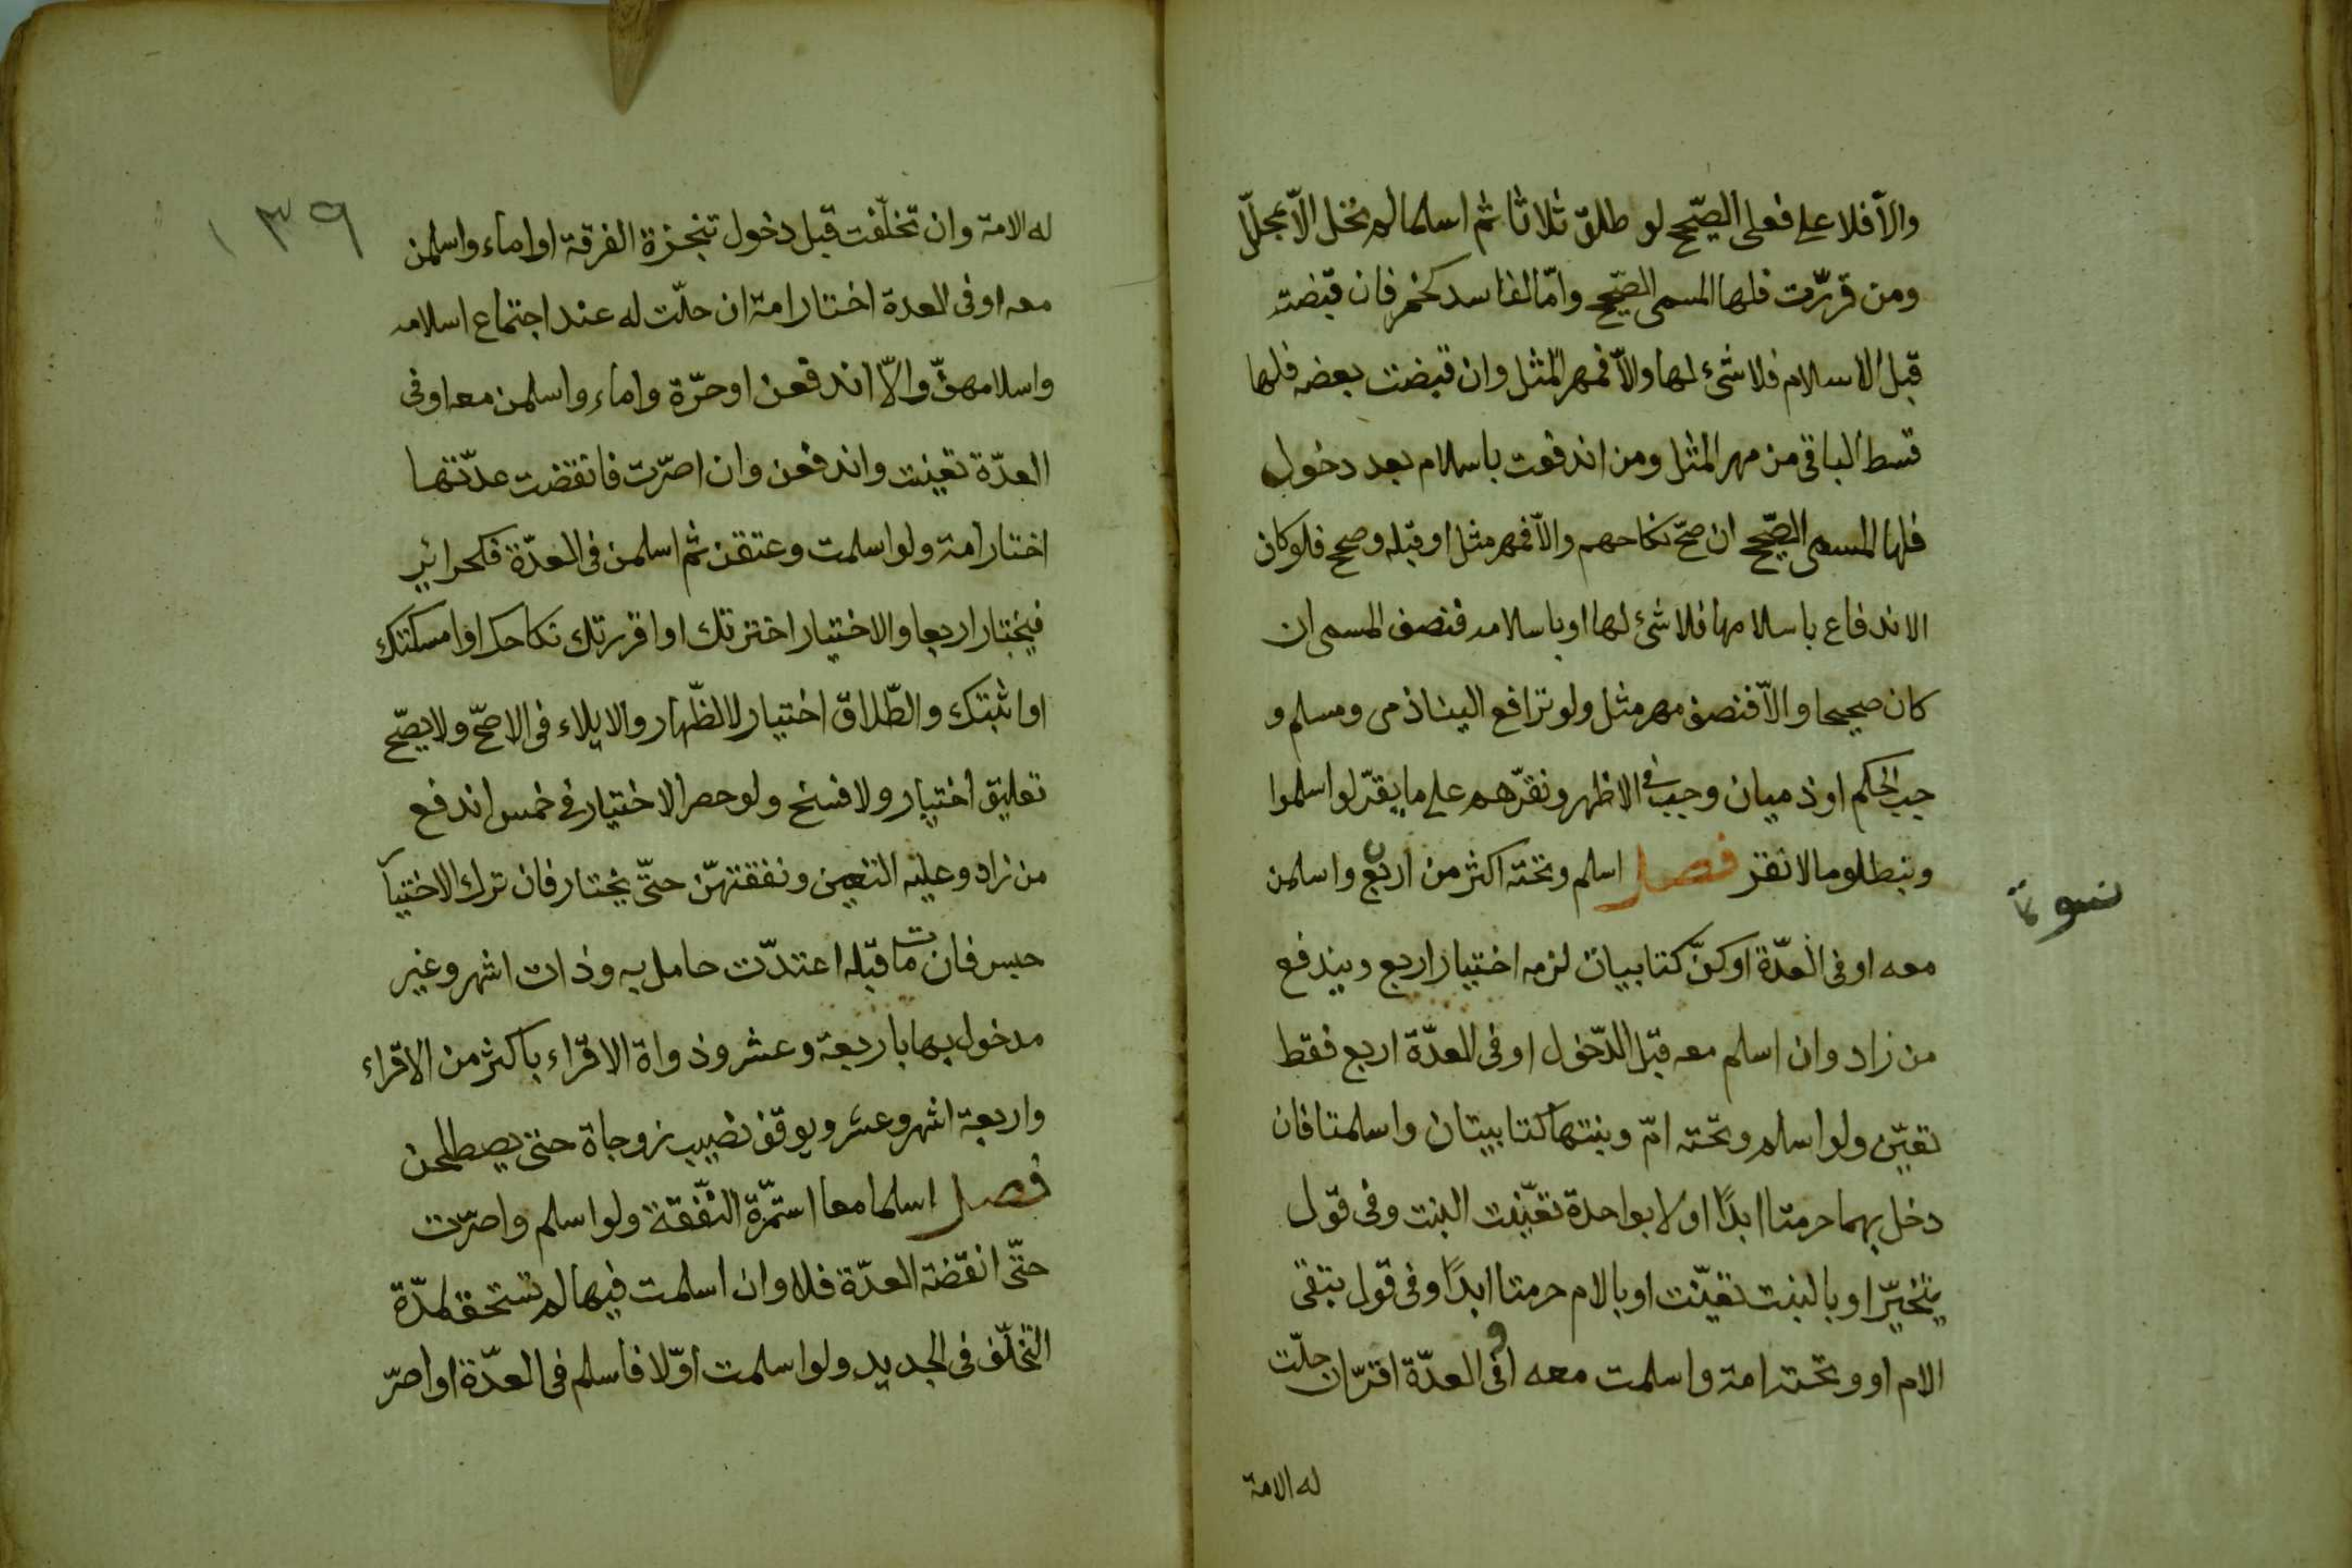 والّا فلا على فعلى الصّحيح لو طلق ثلاثا ثم اسلما لم تحل الّا بمحلّل
ومن قرّرت فلها المسمى الصّحيح وامّا الفاسد كخمر فان قبضته
قبل الاسلام فلا شئ لها والّا فمهر المثل وان قبضت بعضه فلها
قسط الباقى من مهر المثل ومن اندفعت باسلام بعد دخول
فلها المسمى الصّحيح ان صحّ نكاحهم والّا فمهر مثل او قبله وصحح فلو كان
الاندفاع باسلامها فلا شئ لها او باسلامه فنصف المسمى ان
كان صحيحا والّا فنصف مهر مثل ولو ترافع الينا ذمى ومسلم و
جب الحكم او ذميان وجب فى الاظهر ونقرّهم على ما يقرّ لو اسلموا
ونبطلو مالا نقر فصل اسلم وتحته اكثر من اربع واسلمن
نسوة
معه او فى العدّة او كنّ كتابيات لزمه اختيار اربع ويندفع
من زاد وان اسلم معه قبل الدّخول او فى العدّة اربع فقط
تعيّن ولو اسلم وتحته امّ وبنتها كتابيتان واسلمتا فان
دخل بهما حرمتا ابدًا او لا بواحدة تعيّنت البنت وفى قول
يتخيّر او بالبنت تعيّنت او بالام حرمتا ابدًا وفى قول تبقى
الام او وتحته امة واسلمت معه او فى العدّة اقرّ ان حلّت
له الامة
١٣٩
له الامة وان تخلّفت قبل دخول تنجزة الفرقة او اماء واسلمن
معه او فى العدة اختار امة ان حلّت له عند اجتماع اسلامه
واسلامهنّ والّا اندفعن او حرّة واماء واسلمن معه او فى
العدّة تعينت واندفعن وان اصرّت فانقضت عدّتها
اختار امة ولو اسلمت وعتقن ثم اسلمن فى العدّة فكحراير
فيختار اربعا والاختيار اخترتك او اقررتك نكاحك او امسكتك
او اثبتك والطّلاق اختيار لا الظّهار والايلاء فى الاصحّ ولا يصّح
تعليق اختيار ولا فسخ ولو حصر الاختيار فى خمس اندفع
من زاد وعليه التعيين ونفقتهنّ حتّى يختار فان ترك الاختيآ
حبس فان مات قبله اعتدّت حامل به وذات اشهر وغير
مدخول بها باربعة وعشر وذواة الاقراء باكثر من الاقراء
واربعة اشهر وعشر ويوقف نصيب زوجاة حتى يصطلحن
فصل اسلما معا استمّرة النّفقة ولو اسلم واصرّت
حتّى انقضة العدّة فلا وان اسلمت فيها لم تستحق لمدّة
التّخلّف فى الجديد ولو اسلمت اوّلا فاسلم فى العدّة او اصرّ